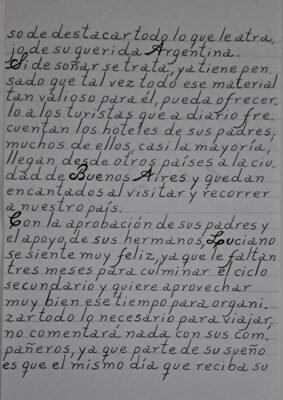 so de destacar todo lo que le atra-
jo de su querida Argentina.
Si de soñar se trata, ya tiene pen-
sado que tal vez todo ese material
tan valioso para él, pueda ofrecer-
lo a los turistas que a diario fre-
cuentan los hoteles de sus padres;
muchos de ellos, casi la mayoría,
llegan desde otros países a la ciu-
dad de Buenos Aires y quedan
encantados al visitar y recorrer
a nuestro país.
Con la aprobación de sus padres y
el apoyo de sus hermanos, Luciano
se siente muy feliz, ya que le faltan
tres meses para culminar el ciclo
secundario y quiere aprovechar
muy bien ese tiempo para organi-
zar todo lo necesario para viajar,
no comentará nada con sus com-
pañeros, ya que parte de su sueño
es que el mismo día que reciba su